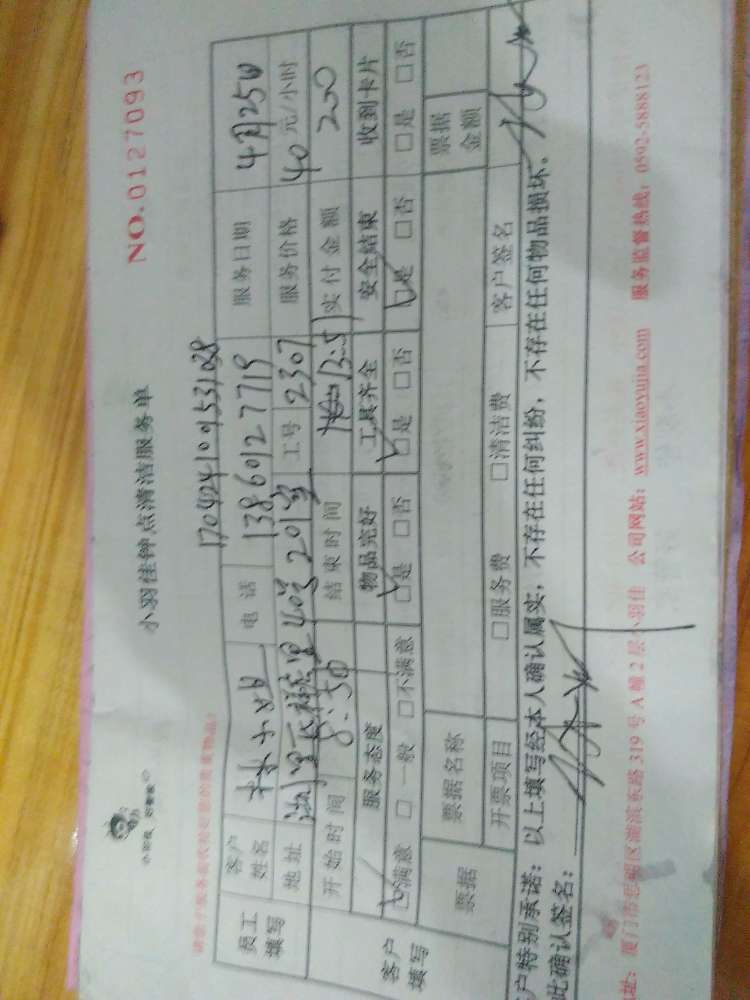 小羽佳钟点清洁服务单
NO.0127093
小羽佳,好管家
17042410153108
员工填写 客户姓名 林小姐 电话 13860127719 服务日期 4月25日
地址 40号201室 工号 2307 服务价格 40元/小时
开始时间 8:50 结束时间 13:51 实付金额 200
客户填写 服务态度 物品完好 工具齐全 安全结束 收到卡片
☑满意 □一般 □不满意 ☑是 □否 ☑是 □否 ☑是 □否 □是 □否
票据 票据名称 票据金额
开票项目 □服务费 □清洁费 客户签名
户特别承诺:以上填写经本人确认属实,不存在任何纠纷,不存在任何物品损坏。
此确认签名:
址:厦门市思明区湖滨东路319号A幢2层小羽佳 公司网站:www.xiaoyujia.com 服务监督热线:0592-5888123